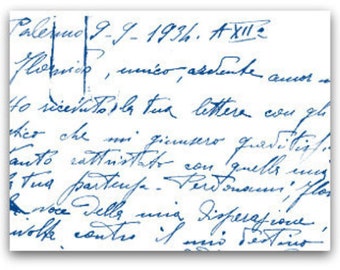 Palermo 9-9-1934. A XIIº
unico, ardente amor m
ho ricevuto la tua lettera con gli
che mi giunsero graditissi
tanto rattristato con quella mia
la tua partenza. Perdonami,
voce della mia disperazione,
contro il mio destino